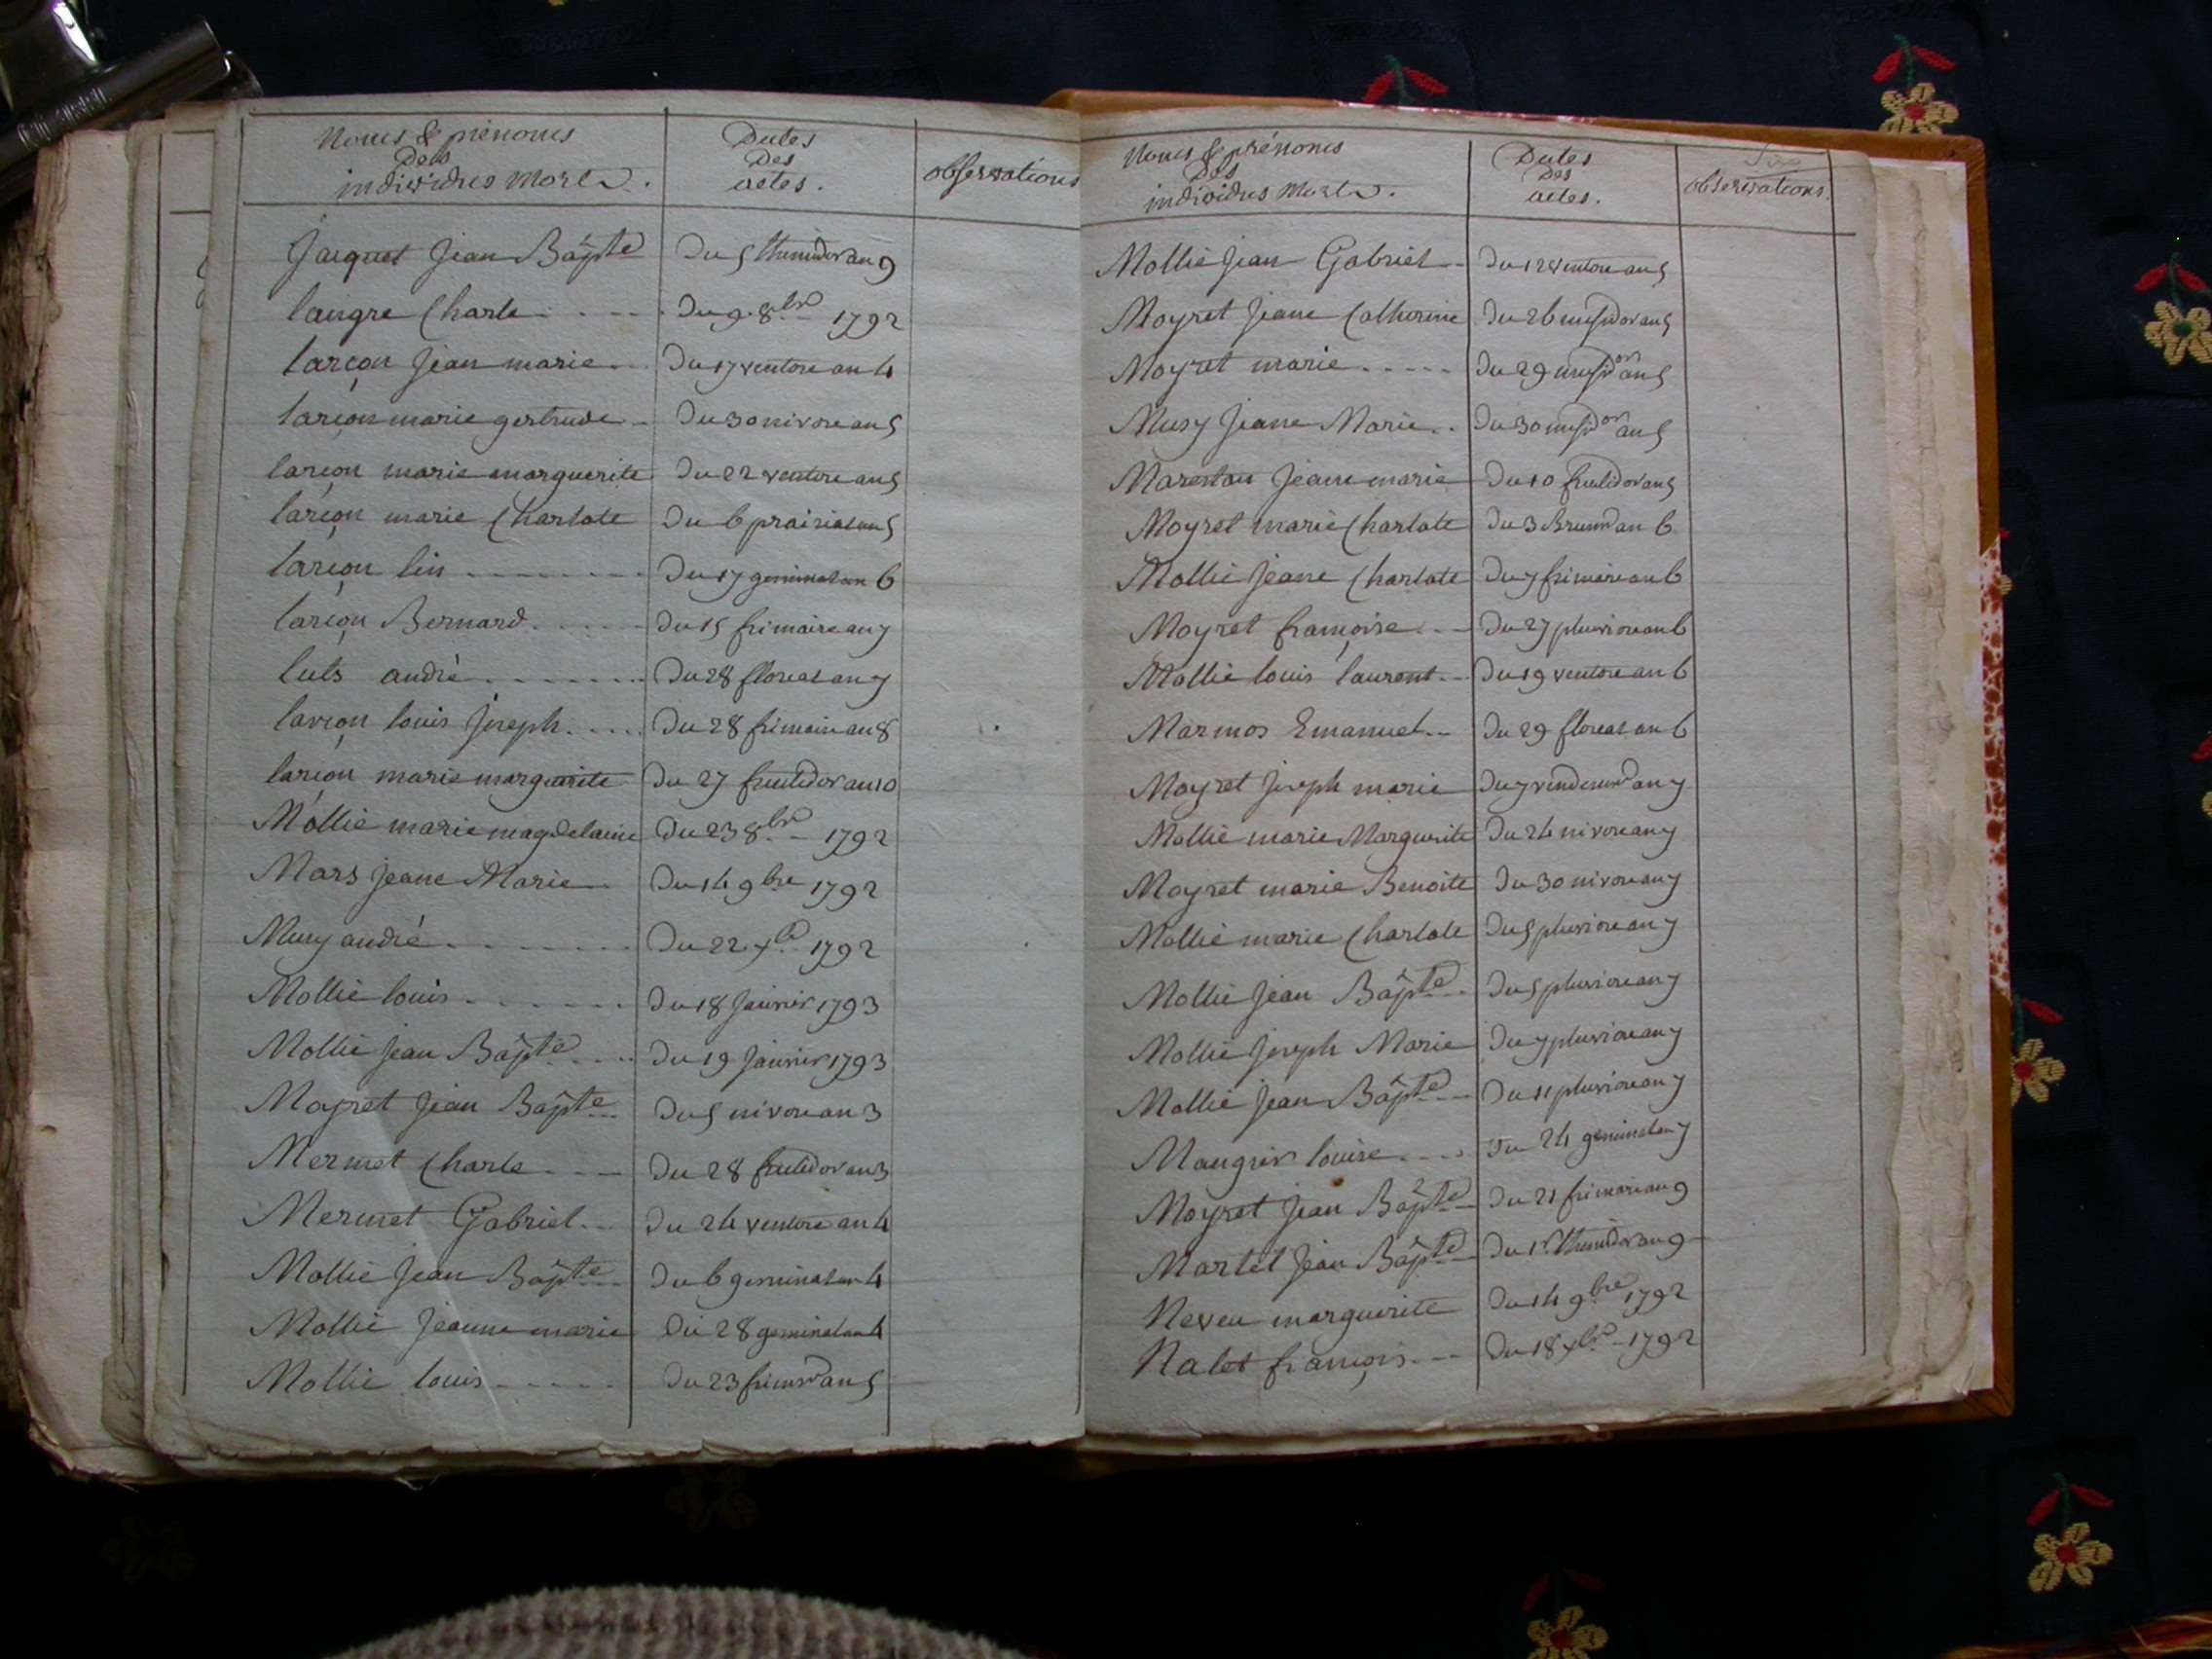 Noms & prénoms
Des
individus Morts.
Dates
Des
actes.
observations
Jacquet Jean Bapte Du 5 thermidor an 9
langre Charle Du 9 8bre 1792
larçon Jean marie Du 17 ventose an 4
larçon marie gertrude Du 30 nivose an 5
larçon marie marguerite Du 22 ventose an 5
larçon marie Charlote Du 6 prairial an 5
larçon lin Du 17 germinal an 6
larçon Bernard Du 15 frimaire an 7
luts andré Du 28 floreal an 7
larçon louis Joseph Du 28 frimaire an 8
larçon marie marguerite Du 27 fructidor an 10
Mollié marie magdelaine Du 23 8bre 1792
Mars Jeane Marie Du 14 9bre 1792
Musy andré Du 22 xbre 1792
Mollié louis Du 18 Janvier 1793
Mollié Jean Bapte Du 19 Janvier 1793
Moyret Jean Bapte Du 5 nivose an 3
Mermet Charle Du 28 fructidor an 3
Mermet Gabriel Du 24 ventose an 4
Mollié Jean Bapte Du 6 germinal an 4
Mollié Jeanne marie Du 28 germinal an 4
Mollié louis Du 23 frimre an 5
Noms & prénoms
Des
individus Morts.
Dates
Des
actes.
observations.
Mollié Jean Gabriel Du 12 ventose an 5
Moyret Jeane Catherine Du 26 messidor an 5
Moyret marie Du 29 messidor an 5
Musy Jeane Marie Du 30 messidor an 5
Jeane marie Du 10 fructidor an 5
Moyret marie Charlote Du 3 Brumre an 6
Mollié Jeane Charlote Du 7 frimaire an 6
Moyret françoise Du 27 pluviose an 6
Mollié louis laurent Du 19 ventose an 6
Marmos Emanuel Du 29 floreal an 6
Moyret Joseph marie Du 7 vendemre an 7
Mollié marie Marguerite Du 24 nivose an 7
Moyret marie Benoite Du 30 nivose an 7
Mollié marie Charlote Du 5 pluviose an 7
Mollié Jean Bapte Du 5 pluviose an 7
Mollié Joseph Marie Du 7 pluviose an 7
Mollié Jean Bapte Du 11 pluviose an 7
Maugrir louise Du 24 germinal an 7
Moyret Jean Bapte Du 21 frimaire an 9
Martel Jean Bapte Du 1r thermidor an 9
Neveu marguerite Du 14 9bre 1792
Nalet françois Du 18 xbre 1792